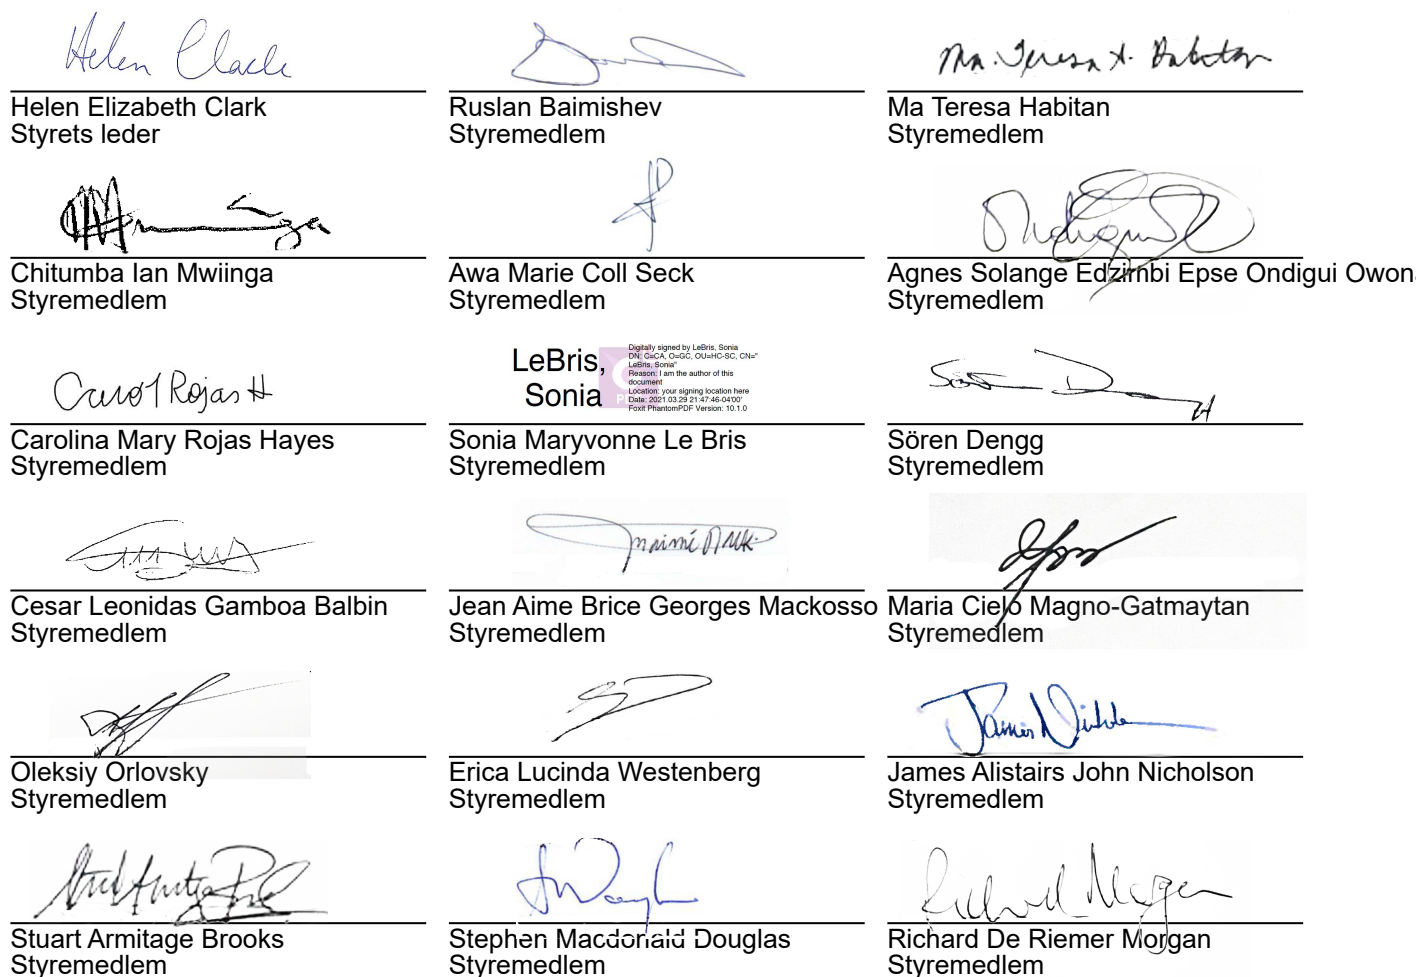 Helen Clark
Helen Elizabeth Clark
Styrets leder
Ruslan Baimishev
Styremedlem
Ma. Teresa S. Habitan
Ma Teresa Habitan
Styremedlem
Chitumba Ian Mwiinga
Styremedlem
Awa Marie Coll Seck
Styremedlem
Agnes Solange Edzimbi Epse Ondigui Owona
Styremedlem
Carol Rojas H
Carolina Mary Rojas Hayes
Styremedlem
LeBris,
Sonia
Digitally signed by LeBris, Sonia
DN: C=CA, O=GC, OU=HC-SC, CN="
LeBris, Sonia"
Reason: I am the author of this
document
Location: your signing location here
Date: 2021.03.29 21:47:46-04'00'
Foxit PhantomPDF Version: 10.1.0
Sonia Maryvonne Le Bris
Styremedlem
Sören Dengg
Styremedlem
Cesar Leonidas Gamboa Balbin
Styremedlem
Jean Aime Brice Georges Mackosso
Styremedlem
Maria Cielo Magno-Gatmaytan
Styremedlem
Oleksiy Orlovsky
Styremedlem
Erica Lucinda Westenberg
Styremedlem
James Alistairs John Nicholson
Styremedlem
Stuart Armitage Brooks
Styremedlem
Stephen Macdonald Douglas
Styremedlem
Richard Morgan
Richard De Riemer Morgan
Styremedlem